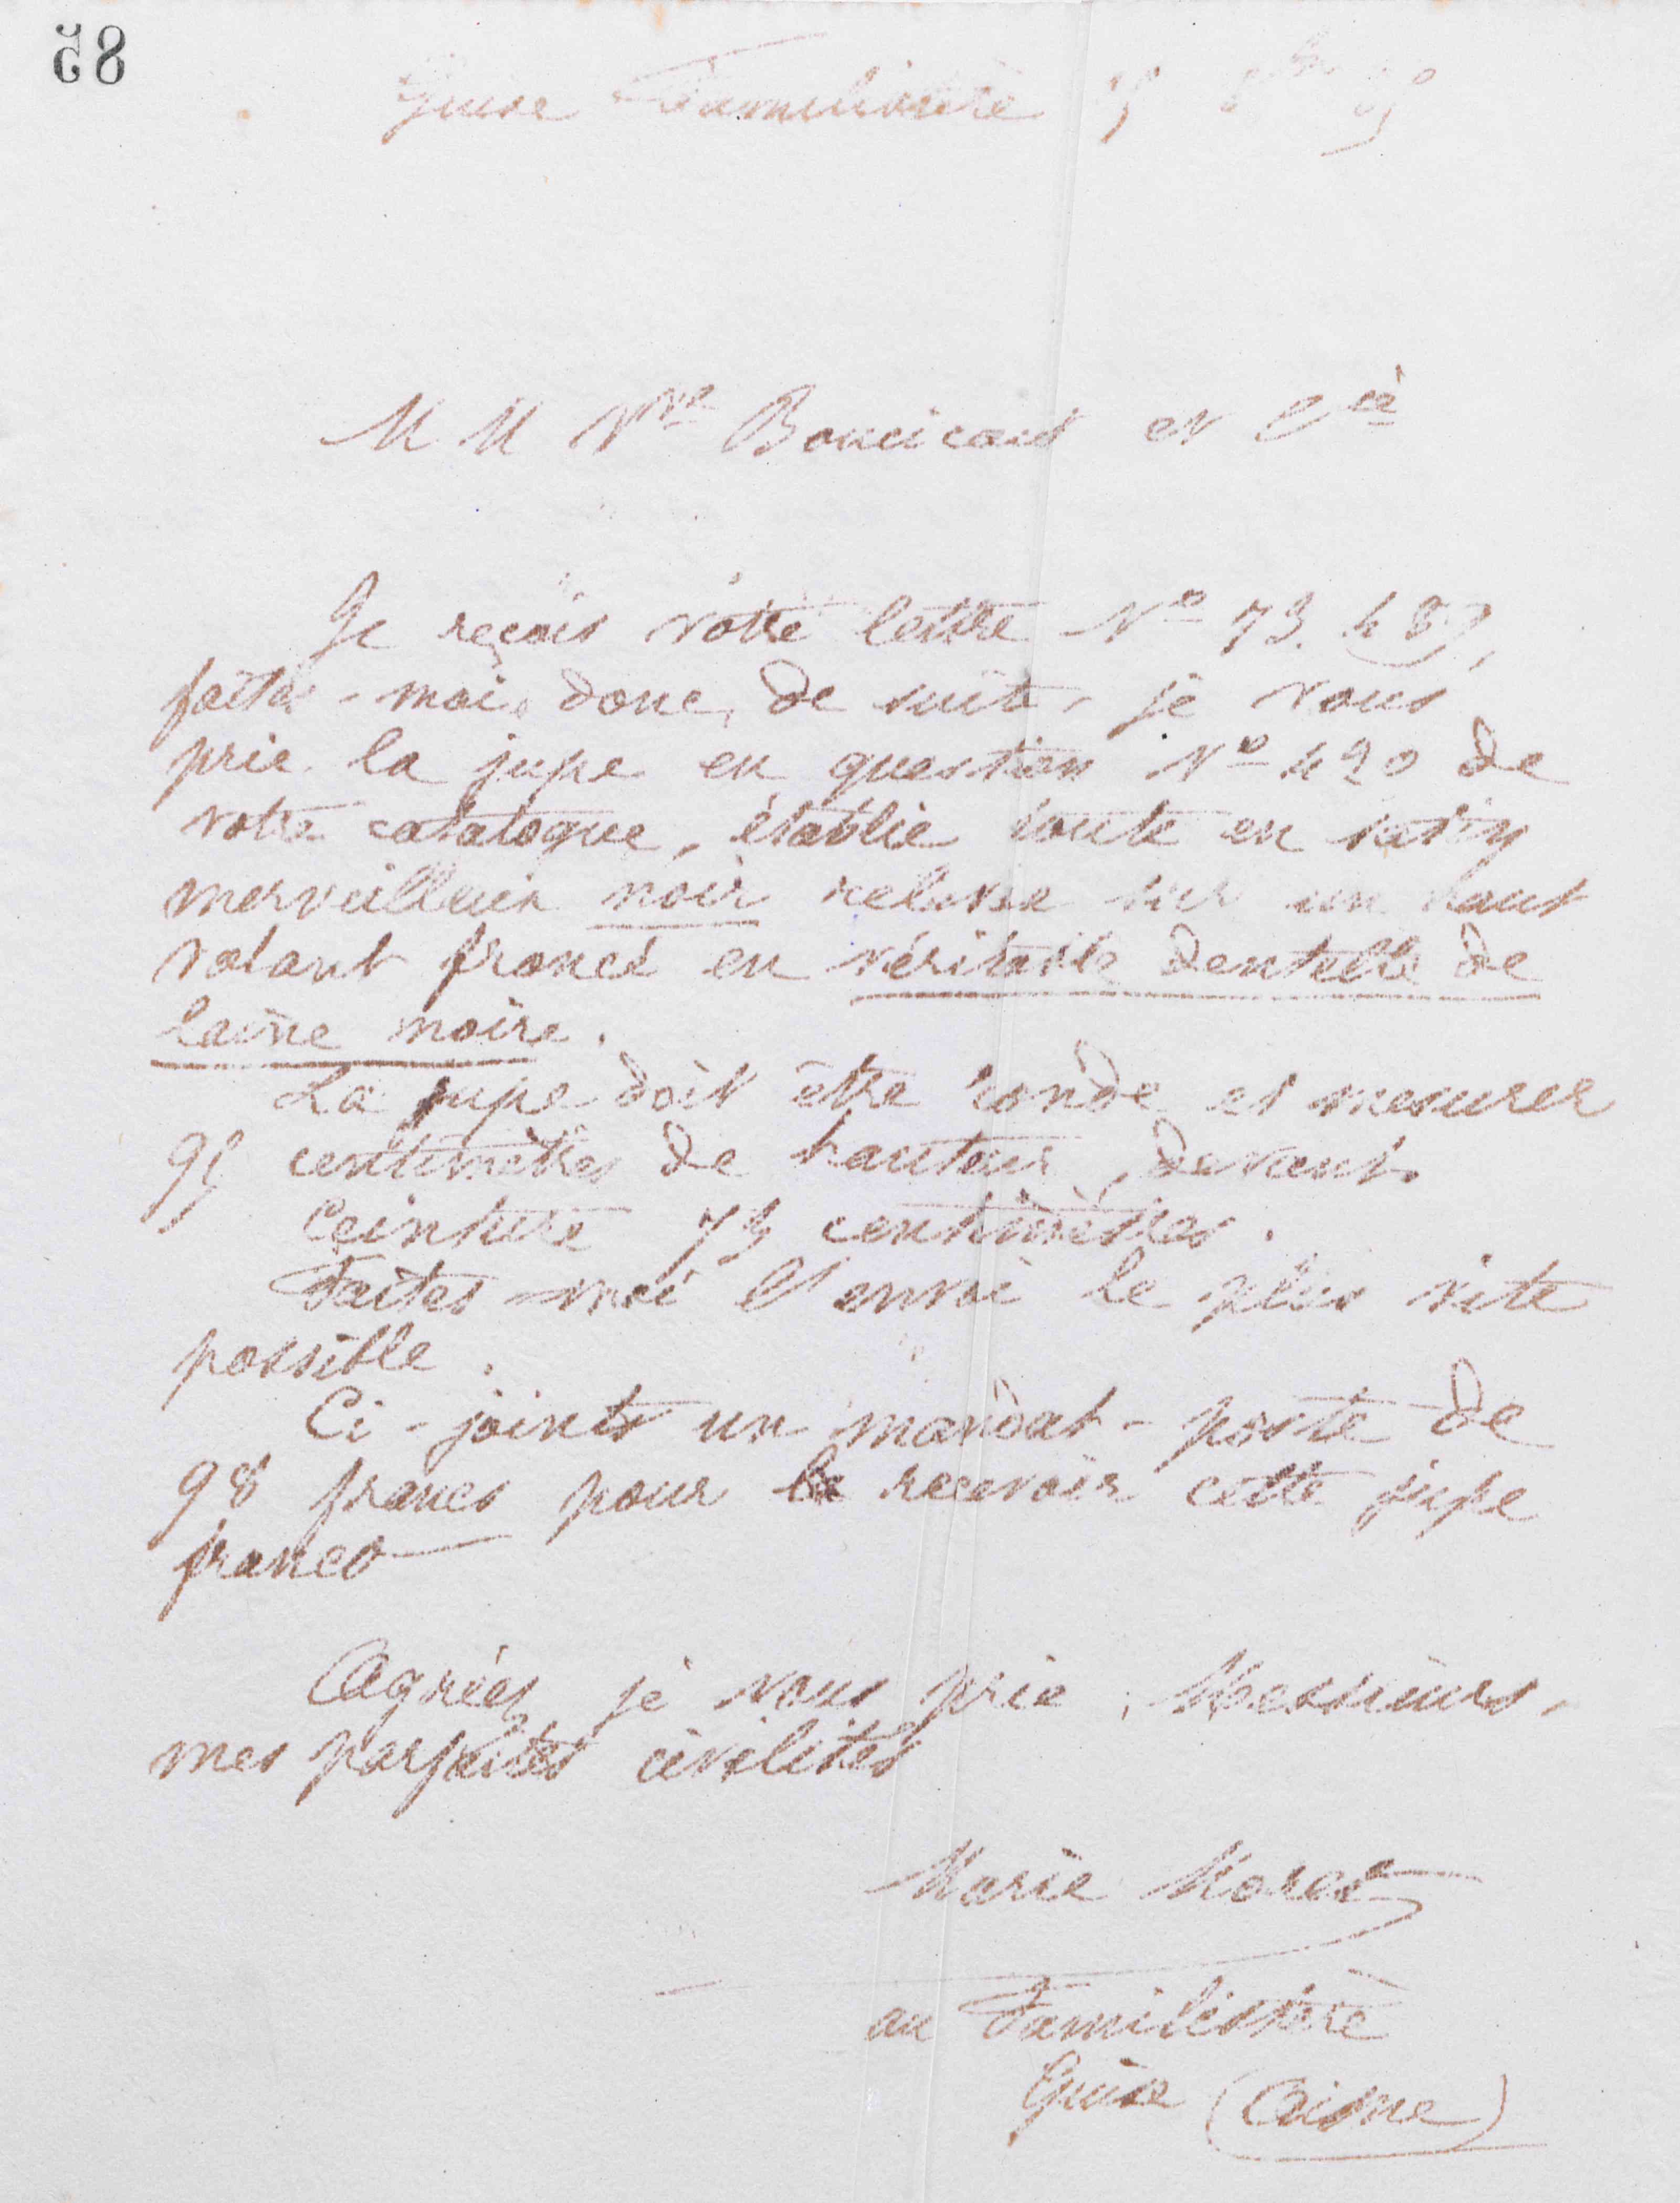 85
Guise Familistère
MM Vve Boucicaut et Cie
Je reçois votre lettre No 73.487,
faites-moi donc, de suite, je vous
prie la jupe en question No 420 de
votre catalogue, établie toute en satin
merveilleux noir relevée sur un haut
volant froncé en véritable dentelle de
laine noire.
La jupe doit être ronde et mesurer
95 centimètres de hauteur, devant.
Ceinture 75 centimètres.
Faites-moi l'envoi le plus vite
possible.
Ci-joint un mandat-poste de
98 francs pour recevoir cette jupe
franco
Agréez je vous prie, Messieurs,
mes parfaites civilités
Marie Moret
au Familistère
Guise (Aisne)